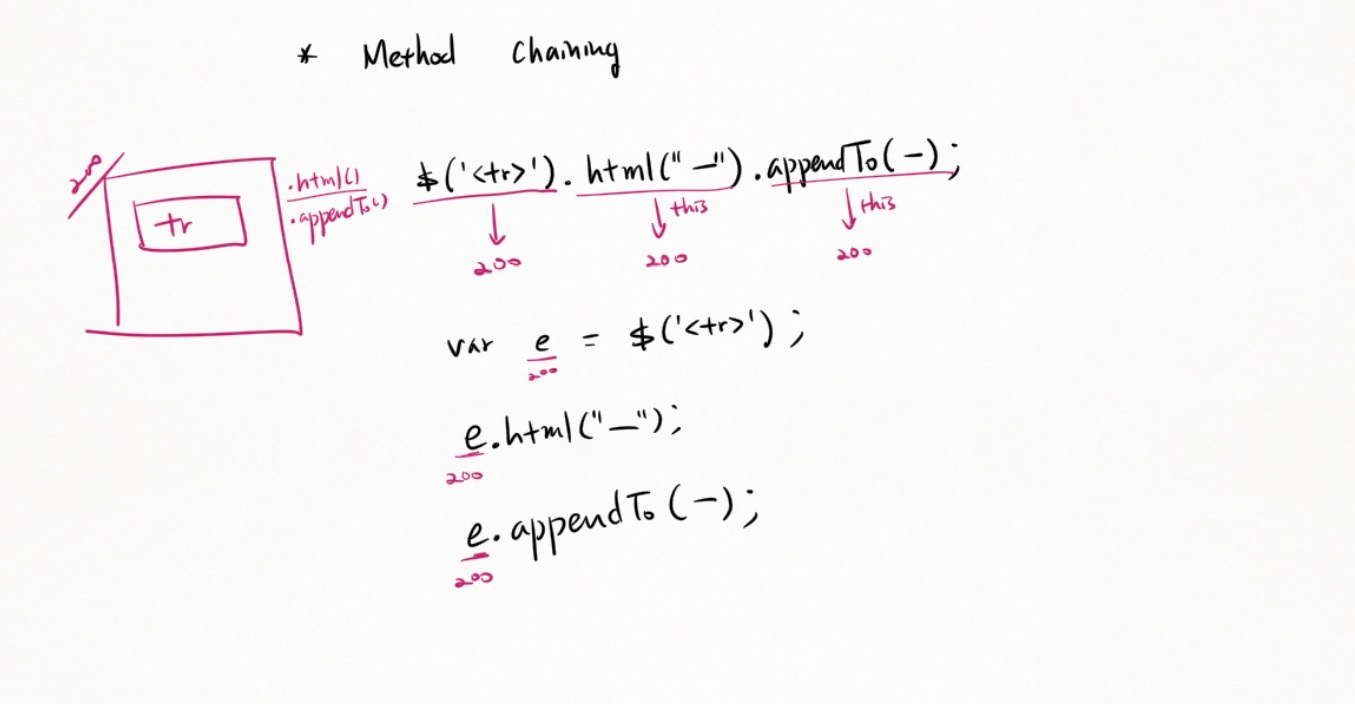 * Method Chaining
200
tr
.html()
.appendTo()
$('<tr>').html("—").appendTo(—);
this this
200 200 200
var e = $('<tr>');
200
e.html("—");
200
e.appendTo(—);
200